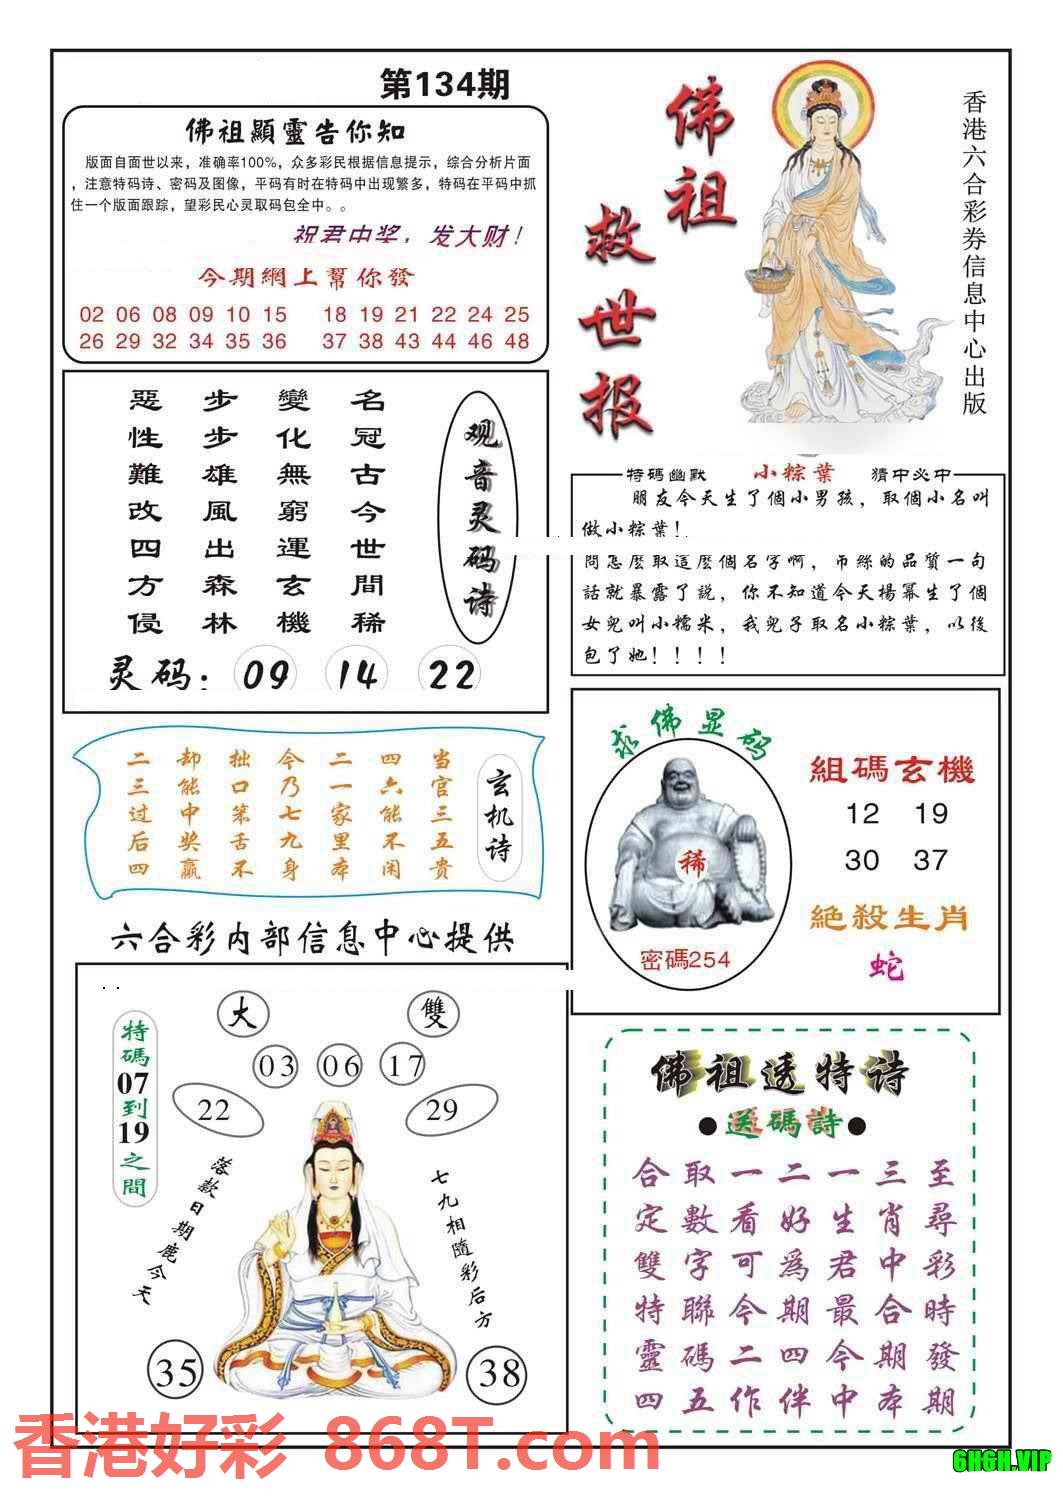 第134期
佛祖顯靈告你知
版面自面世以来，准确率100%，众多彩民根据信息提示，综合分析片面
，注意特码诗、密码及图像，平码有时在特码中出现繁多，特码在平码中抓
住一个版面跟踪，望彩民心灵取码包全中。。
祝君中奖，发大财！
今期網上幫你發
02 06 08 09 10 15 18 19 21 22 24 25
26 29 32 34 35 36 37 38 43 44 46 48
佛祖
救世报
香港六合彩券信息中心出版
观音灵码诗
名冠古今世間稀
變化無窮運玄機
步步雄風出森林
惡性難改四方侵
灵码：09 14 22
特碼幽默 小粽葉 猜中必中
朋友今天生了個小男孩，取個小名叫
做小粽葉！
問怎麼取這麼個名字啊，吊絲的品質一句
話就暴露了説，你不知道今天楊冪生了個
女兒叫小糯米，我兒子取名小粽葉，以後
包了她！！！！
玄机诗
当官三五贵
四六能不闲
二一家里本
今乃七九身
拙口笨舌不
却能中奖赢
二三过后四
求佛显码
稀
密碼254
組碼玄機
12 19
30 37
絶殺生肖
蛇
六合彩内部信息中心提供
大 雙
03 06 17
22 29
特碼07到19之間
落款日期鹿今天
七九相隨彩后方
35 38
佛祖透特诗
●送碼詩●
至尋彩時發期
三肖中合期本
一生君最今中
二好為期四伴
一看可今二作
取數字聯碼五
合定雙特靈四
香港好彩 868T.com
6H6H.VIP